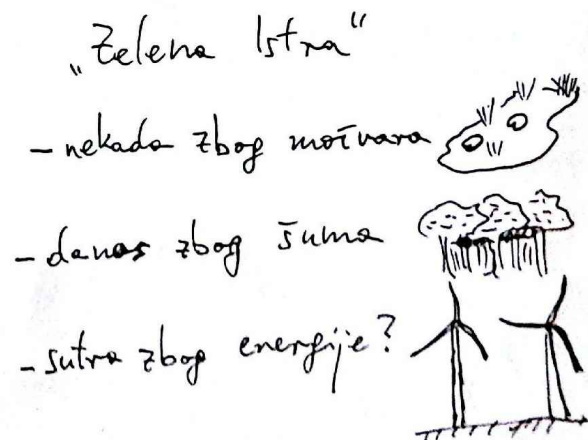 „Zelena Istra“
- nekada zbog močvara
- danas zbog šuma
- sutra zbog energije?